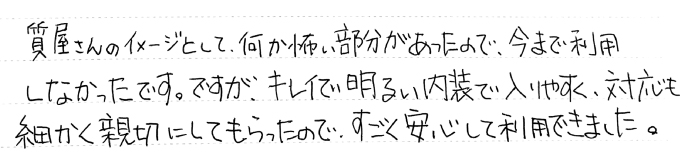 質屋さんのイメージとして、何か怖い部分があったので、今まで利用
しなかったです。ですが、キレイで明るい内装で入りやすく、対応も
細かく親切にしてもらったので、すごく安心して利用できました。